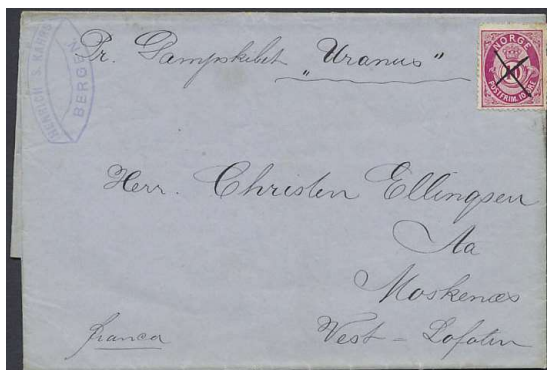 HEINRICH S. KAHRS
BERGEN
Pr. Dampskibet "Uranus"
NORGE
POSTFRIM. 10 ØRE
Herr. Christen Ellingsen
Aa
Moskenæs
Vest - Lofoten
franco